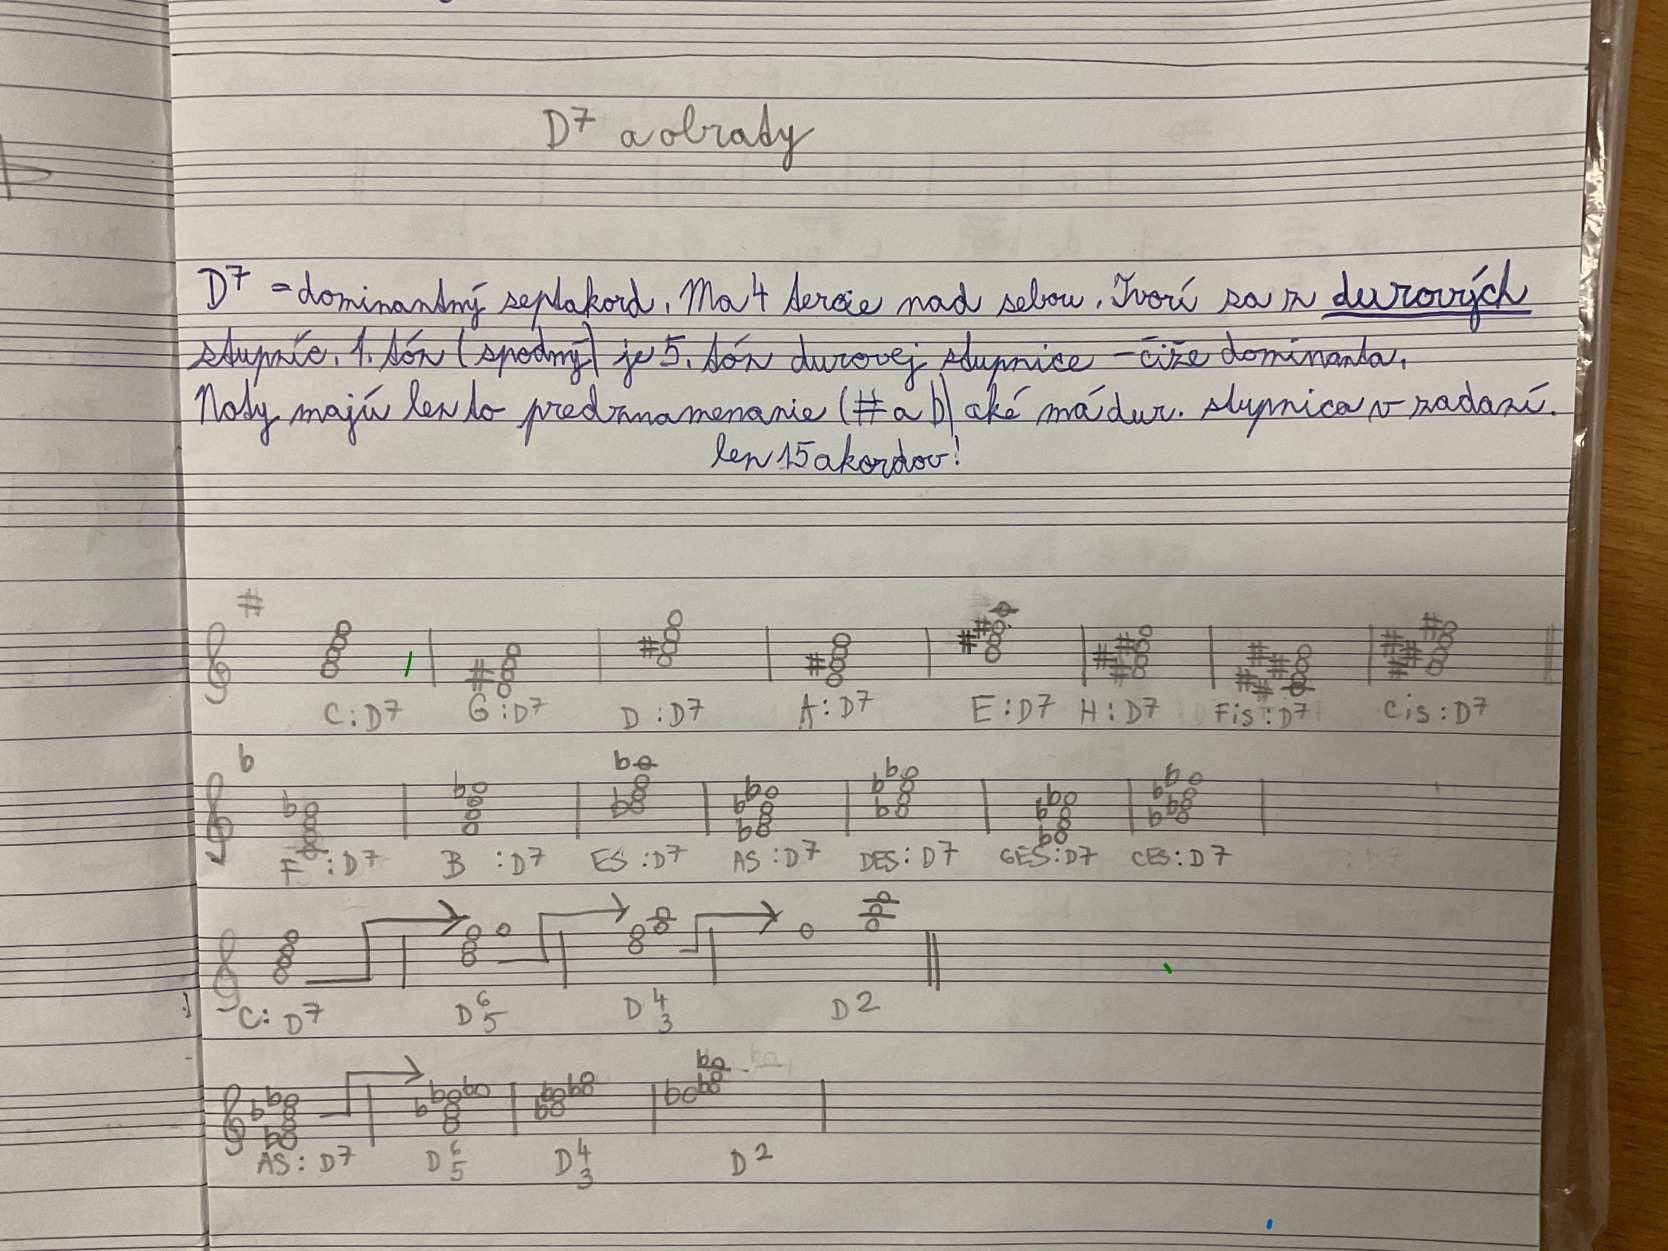 D7 a obraty
D7 = dominantný septakord. Ma 4 tercie nad sebou. Tvorí sa z durových
stupníc. 1. tón (spodný) je 5. tón durovej stupnice - čiže dominanta.
Noty majú len to predznamenanie (# a b) aké má dur. stupnica v zadaní.
len 15 akordov!
#
C: D7 G: D7 D: D7 A: D7 E: D7 H: D7 Fis: D7 Cis: D7
b
F: D7 B: D7 ES: D7 AS: D7 DES: D7 GES: D7 CES: D7
C: D7 D6/5 D4/3 D2
AS: D7 D6/5 D4/3 D2